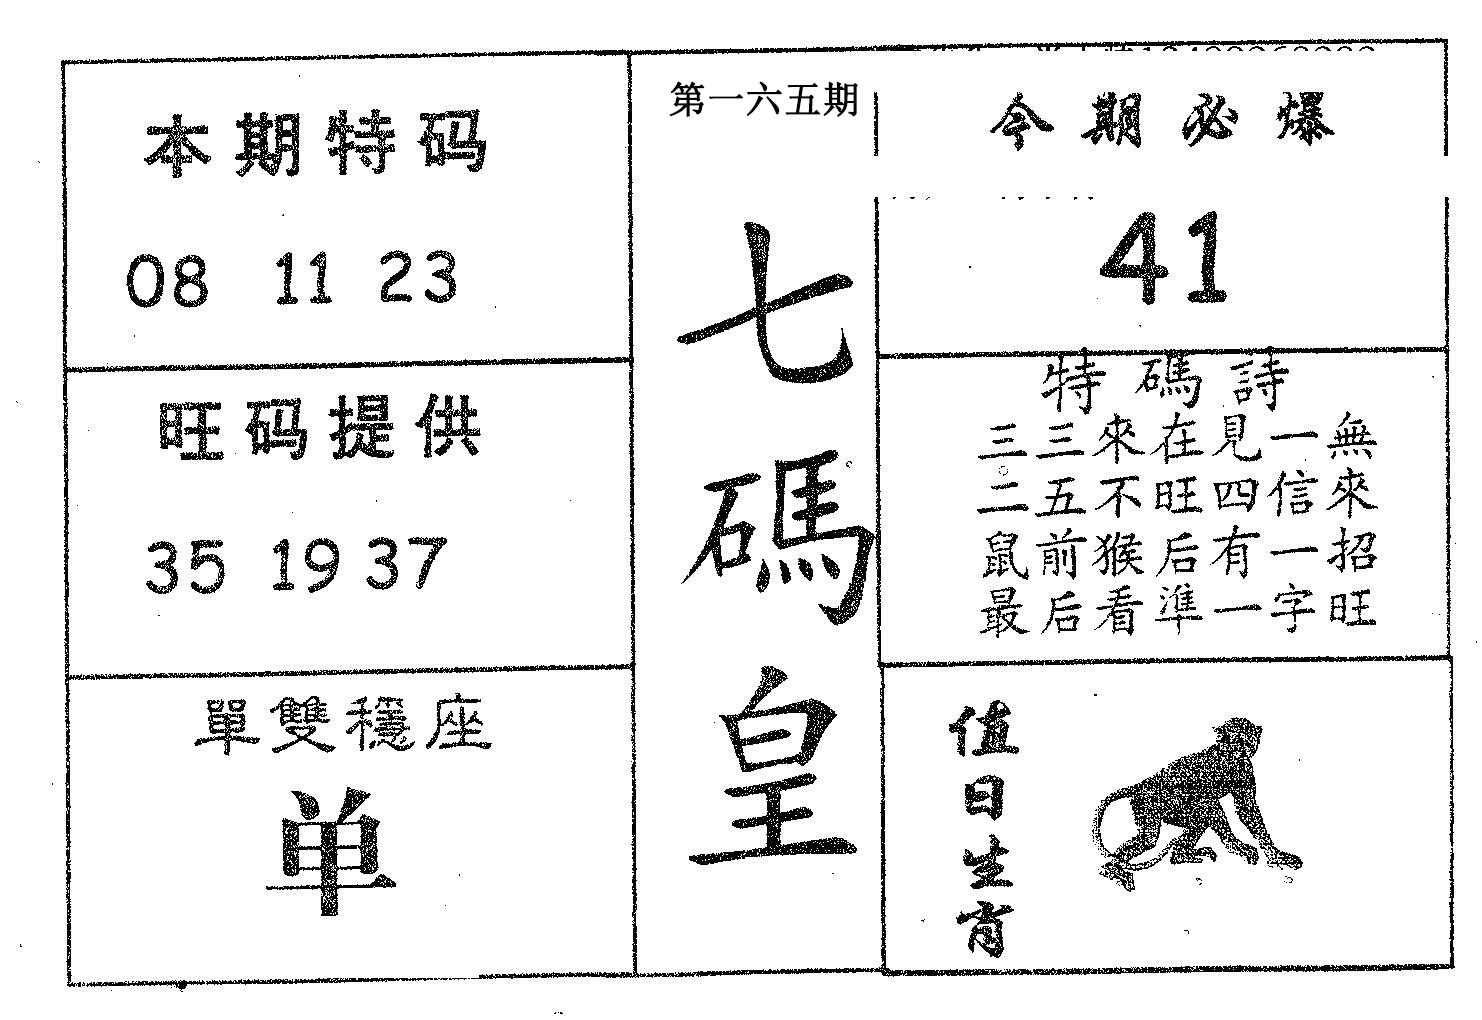 本期特码
08 11 23
旺码提供
35 19 37
單雙穩座
单
第一六五期
七碼皇
今期必爆
41
特碼詩
三三來在見一無
二五不旺四信來
鼠前猴后有一招
最后看準一字旺
值日生肖